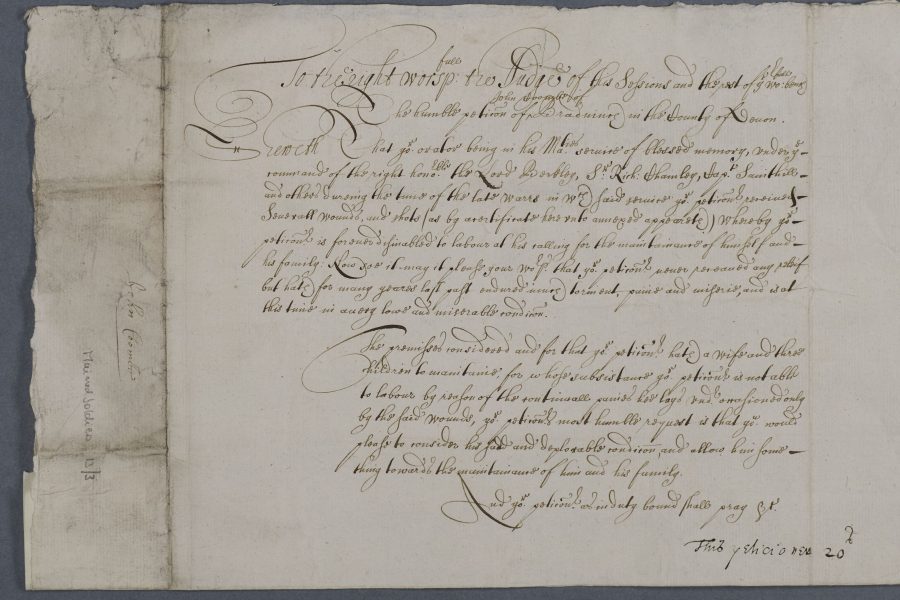 To the right worsp:full the Judge of this Sessions and the rest of ye worsp:full bench
The humble peticon of John Coombe of Bradninch in the County of Devon.
Sheweth That yor orator being in his Maties service of blessed memory, under ye
command of the right honoble the Lord Berkley, Sr Rich: Chamley, Capt Smithill
and others dureing the time of the late warrs in wch said service yor peticonr received
severall wounds, and shots (as by a certificate hereunto annexed appeareth) Whereby yor
peticonr is forever disinabled to labour at his calling for the maintainance of himself and
his family: Now soe it may it please your worpps that yor peticonr never receaved any relief
but hath for many yeares last past endured much torment, paine and miserie, and is at
this time in a very lowe and miserable condicon.
The premisses considered and for that yor peticonr hath a wife and three
children to maintaine for whose subsistance yor peticonr is not able
to labour by reason of the continuall paines hee lays undr occasioned only
by the said wounds, yor peticonrs most humble request is that yor would
please to consider his sad and deplorable condicon and allow him some
thing towards the maintainance of him and his family.
And yor peticonr as in duty bound shall pray &c.
This peticioner 20
John Coombe
Maimed Soldiers 12/3